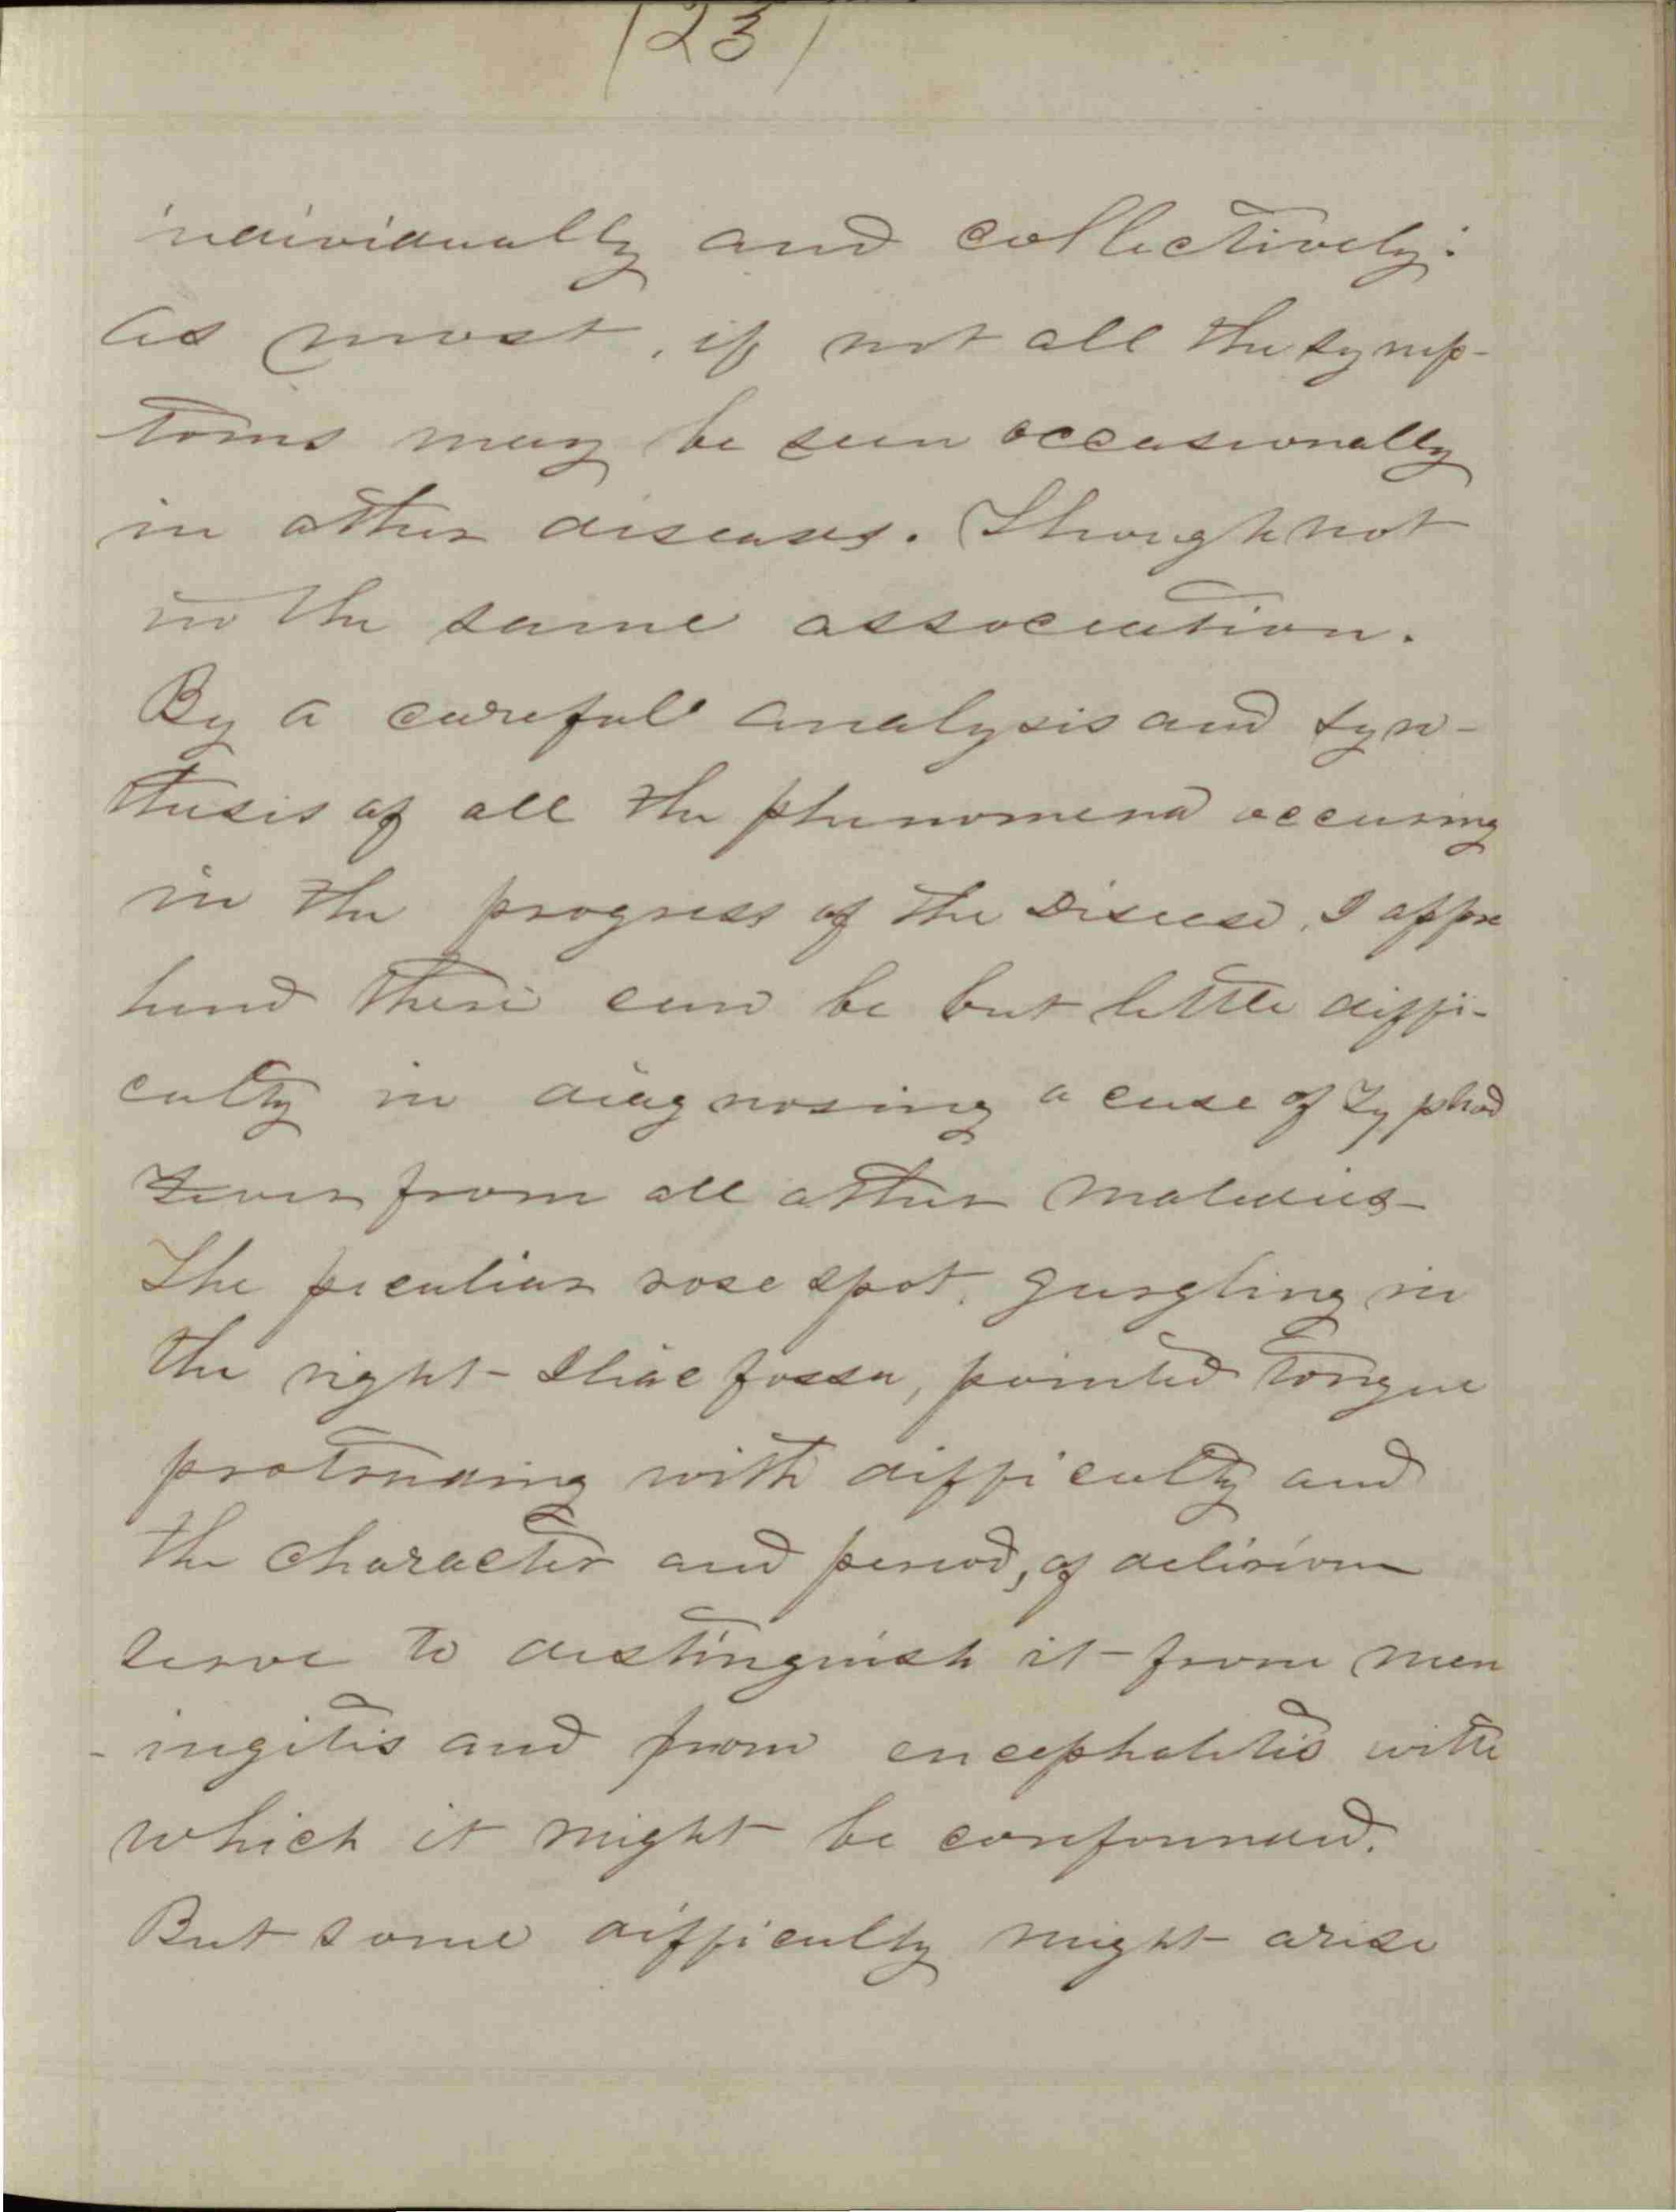 (23)
individually and collectively:
as most, if not all the symp-
toms may be seen occasionally
in other diseases. Though not
in the same association.
By a careful analysis and syn-
thesis of all the phenomena occuring
in the progress of the Disease, I appre
hend there can be but little diffi-
culty in diagnosing a case of Typhod
Fever from all other maladies-
The peculiar rose spot, gurgling in
the right Iliac fossa, pointed tongue
protruding with difficulty and
the character and period, of delirium
serve to distinguish it from men
-ingitis and from encephalitis with
which it might be confounded.
But some difficulty might arise